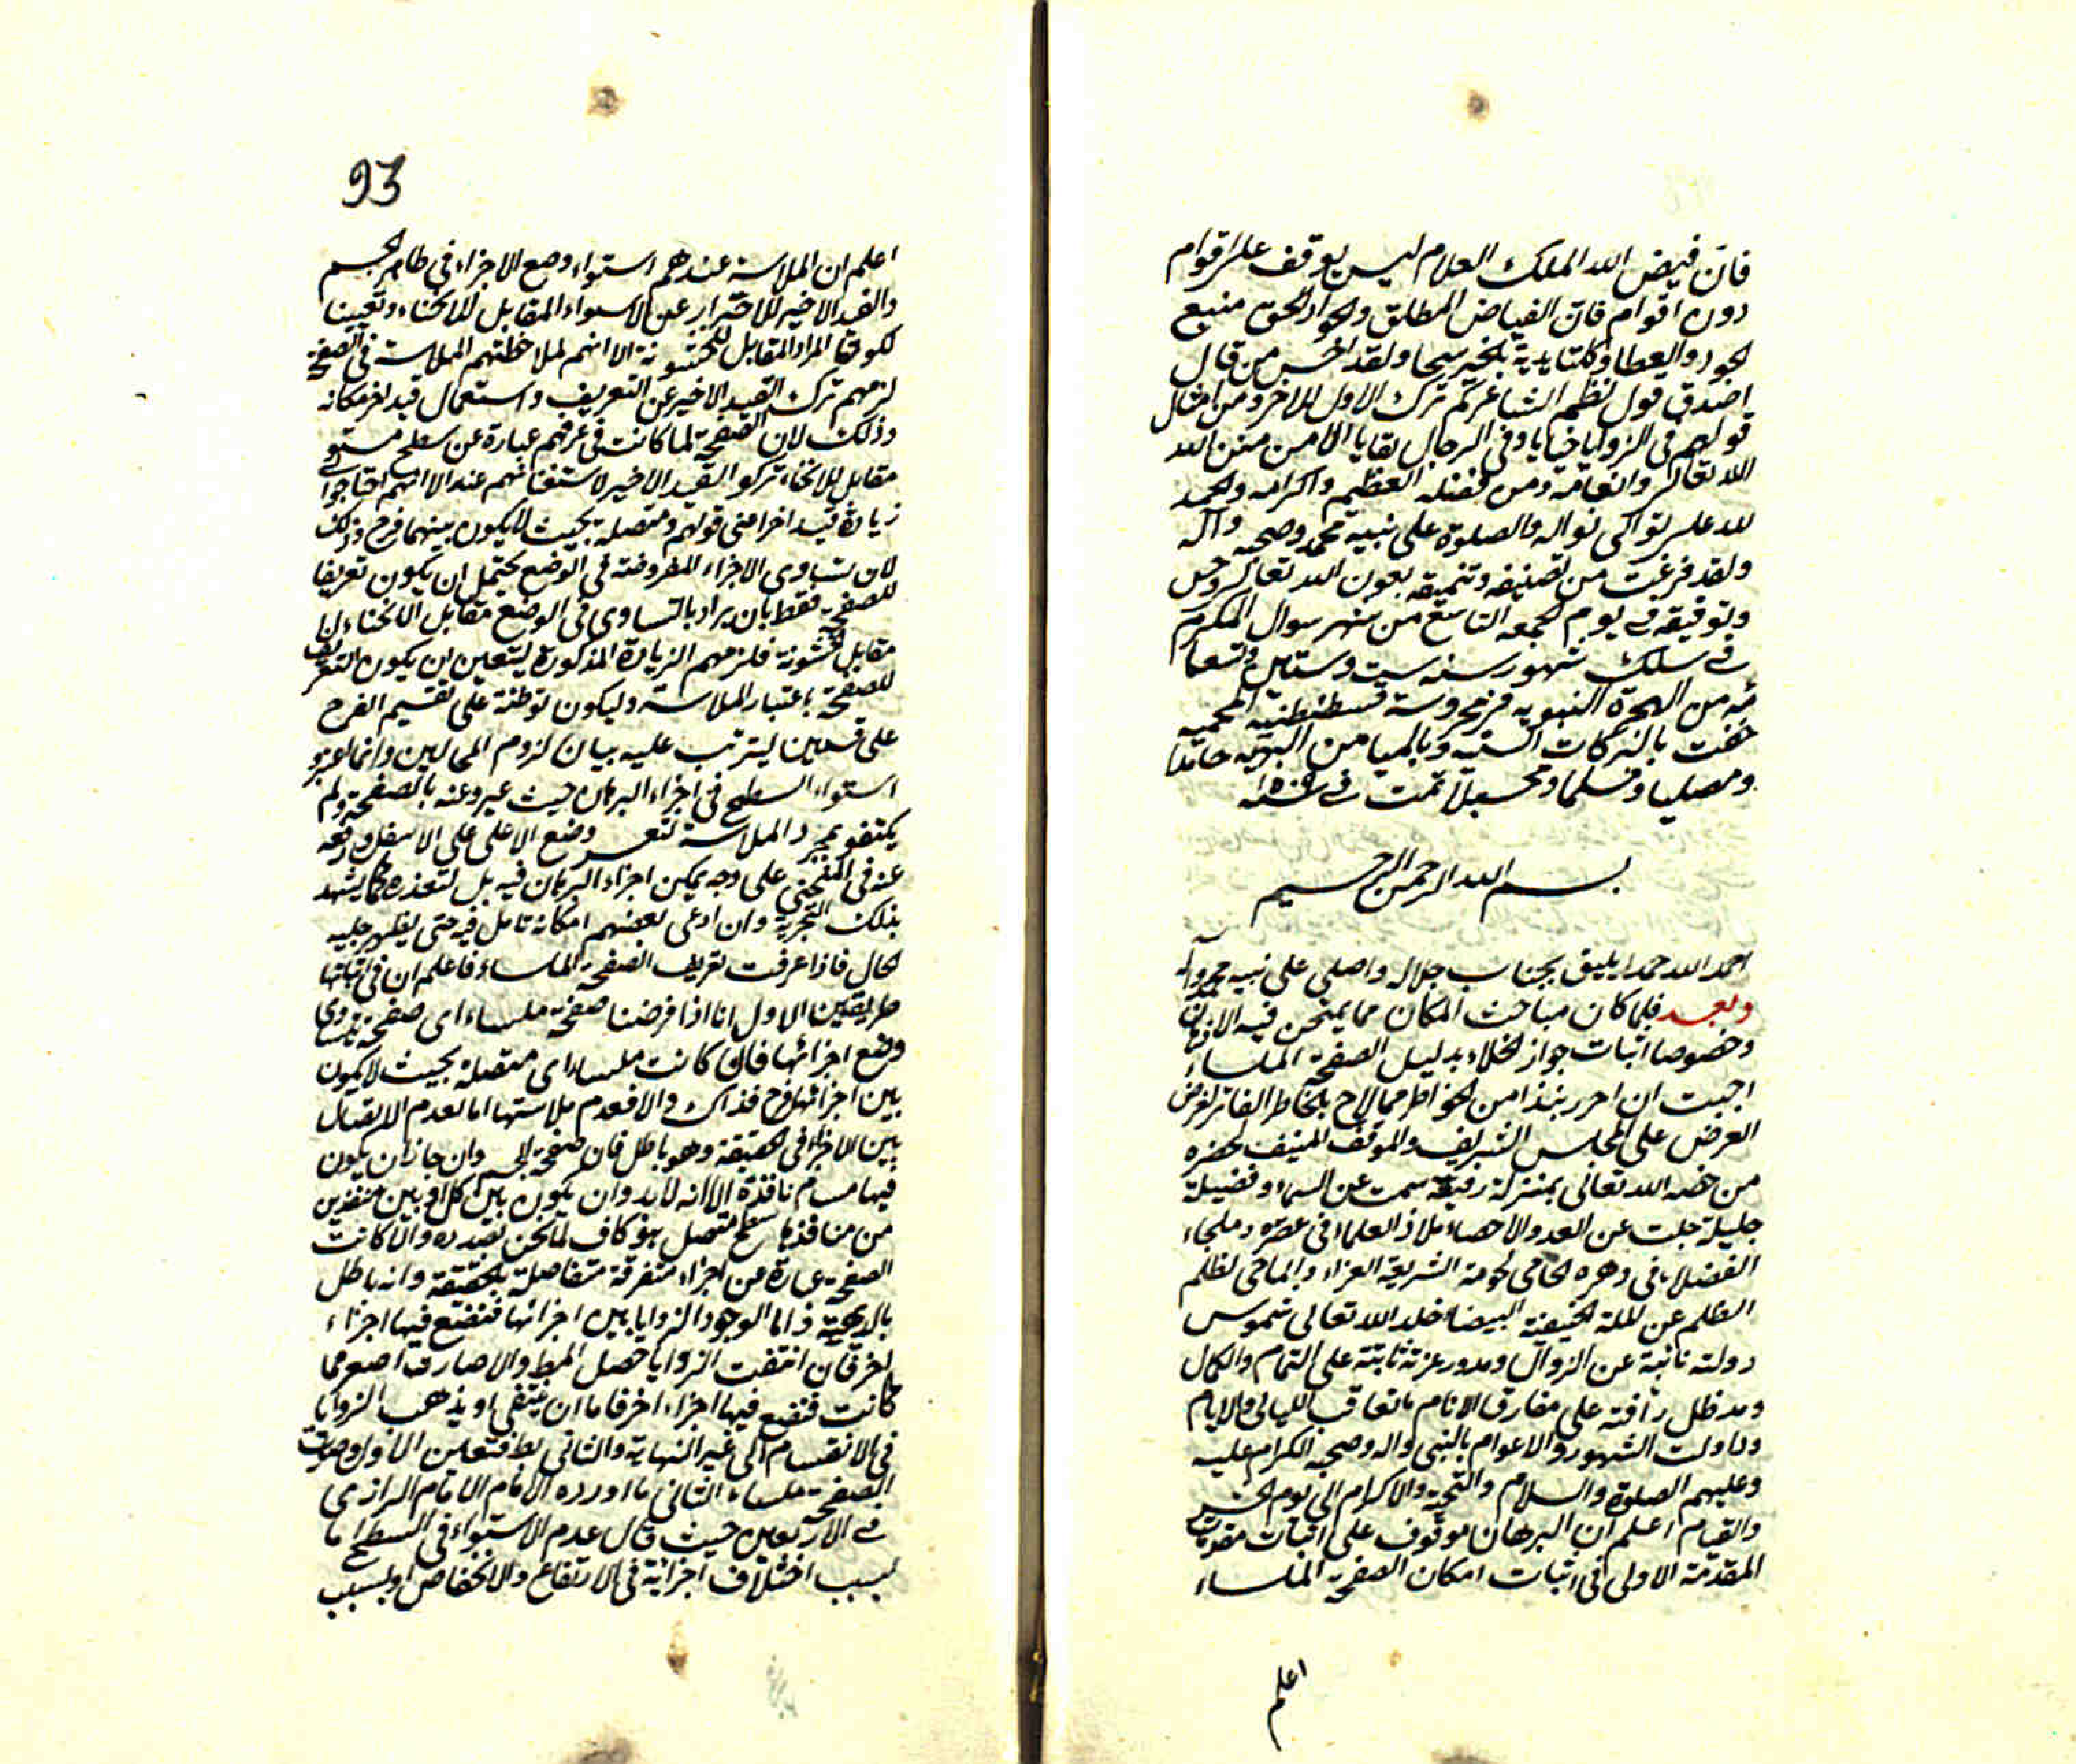 فان فيض الله الملك العلام ليس يوقف على اقوام
دون اقوام فان الفياض المطلق والجواد الحق منبع
الجود والعطا وكلتا يديه بالخير سحا ولقد احسن من قال
اصدق قول نظم الشاعر كم ترك الاول للاخر ومن امثال
قولهم في الزوايا خبايا وفي الرجال بقايا الا من منن الله
الله تعالى وانعامه ومن فضله العظيم واكرامه والحمد
لله على توالى نواله والصلوة على نبيه محمد وصحبه وآله
ولقد فرغت من تصنيفه وتنميقه بعون الله تعالى وحسن
وتوفيقه في يوم الجمعه التاسع من شهر شوال المكرم
في سلك شهور سنه ست وستين وتسعما
ئه من الهجرة النبويه في محروسة قسطنطنية المحميه
حفت بالبركات السنيه وبالميامن البهيه حامدا
ومصليا ومسلما ومحسبلا تمت في سنه
بسم الله الرحمن الرحيم
احمد الله حمدا يليق بجناب جلاله واصلى على نبيه محمد وآله
وبعد فلما كان مباحث المكان مما يمتحن فيه الاذهان
وخصوصا اثبات جواز الخلاء بدليل الصفحة الملساء
اجبت ان احرر نبذا من الخواطر مما لاح بالخاطر الفاتر لغرض
العرض على المجلس الشريف والموقف المنيف لحضره
من خصه الله تعالى بمنزلة رفيعة سمت عن السماء وفضيلة
جليلة جلت عن العد والاحصاء ملاذ العلما في عصره وملجاء
الفضلاء في دهره الحامى لحومة الشريعة الغراء والماحى لظلم
الظلم عن الملة الحنيفية البيضاء خلد الله تعالى شموس
دولته نائية عن الزوال وبدور عزته ثابتة على التمام والكمال
ومد ظل رأفته على مفارق الانام ما تعاقب الليالى والايام
وداولت الشهور والاعوام بالنبى واله وصحبه الكرام عليه
وعليهم الصلوة والسلام والتحية والاكرام الى يوم الحشر
والقيام اعلم ان البرهان موقوف على اثبات مقدمات
المقدمة الاولى فى اثبات امكان الصفحة الملساء
اعلم
93
اعلم ان الملاسة عندهم استواء وضع الاجزاء في ظاهر الجسم
والقيد الاخير للاحتراز عن الاستواء المقابل للانحناء وتعيينا
لكونها المراد المقابل للخشونة الا انهم لملاحظتهم الملاسة في الصفحة
لزمهم ترك القيد الاخير عن التعريف واستعمال قيد اخر مكانه
وذلك لان الصفحة لما كانت في عرفهم عبارة عن سطح مستو
مقابل للانحناء تركوا القيد الاخير لاستغنائهم عنه الا انهم احتاجوا الى
زيادة قيد اخر اعنى قولهم ومتصلة بحيث لا يكون بينهما فرج وذلك
لان تساوى الاجزاء المفروضة في الوضع يحتمل ان يكون تعريفا
للصفحة فقط بان يراد بالتساوى في الوضع مقابل الانحناء لا
مقابل الخشونة فلزمهم الزيادة المذكورة ليتعين ان يكون التعريف
للصفحة باعتبار الملاسة وليكون توطئة على تقسيم الفرج
على قسمين ليترتب عليه بيان لزوم المحالين وانما اعتبر
استواء السطح في اجزاء البرهان حيث عبر وعنه بالصفحة ولم
يكتفوا بمجرد الملاسة لتعسر وضع الاعلى على الاسفل ورفعه
عنه في المنحنى على وجه يمكن اجراء البرهان فيه بل لتعذره كما يشهد
بذلك التجربة وان ادعى بعضهم امكانه تامل فيه حتى يظهر جليه
الحال فاذا عرفت تعريف الصفحة الملساء فاعلم ان في اثباتها
طريقين الاول انا اذا فرضنا صفحة ملساء اى صفحة يتساوى
وضع اجزائها فان كانت ملساء اى متصلة بحيث لا يكون
بين اجزائها فرج فذاك والا فعدم ملاستها اما لعدم الاتصال
بين الاجزاء في الحقيقة وهو باطل فان صفحة الجسم وان جاز ان يكون
فيها مسام نافذة الا انه لا بد وان يكون بين كل اوبين منفذين
من منافذها سطح متصل هو كاف لما نحن بصدده والا كانت
الصفحة عبارة عن اجزاء متفرقة متفاصلة بالحقيقة وانه باطل
بالبديهية واما لوجود الزوايا بين اجزائها فنضع فيها اجزاء
اخر فان انتفت الزوايا حصل المط والا صارت اصغر مما
كانت فنضع فيها اجزاء اخر فاما ان ينتفى او يذهب الزوايا
في الانقسام الى غير النهاية والثانى بط فتعين الاول وصارت
الصفحة ملساء الثانى ما اورده الامام الرازى
في الاربعين حيث قال عدم الاستواء في السطح اما
بسبب اختلاف اجزائه في الارتفاع والانخفاض او بسبب